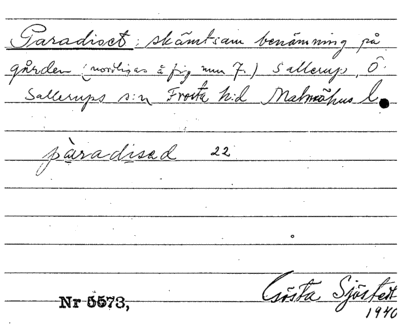 Paradiset: skämtsam benämning på
gården (nordligas å fig num 7.) Sallerup, Ö.
Sallerups s:n Frosta hd Malmöhus l.
pàradisəd 22
Nr 5573,
Gösta Sjöstedt
1940